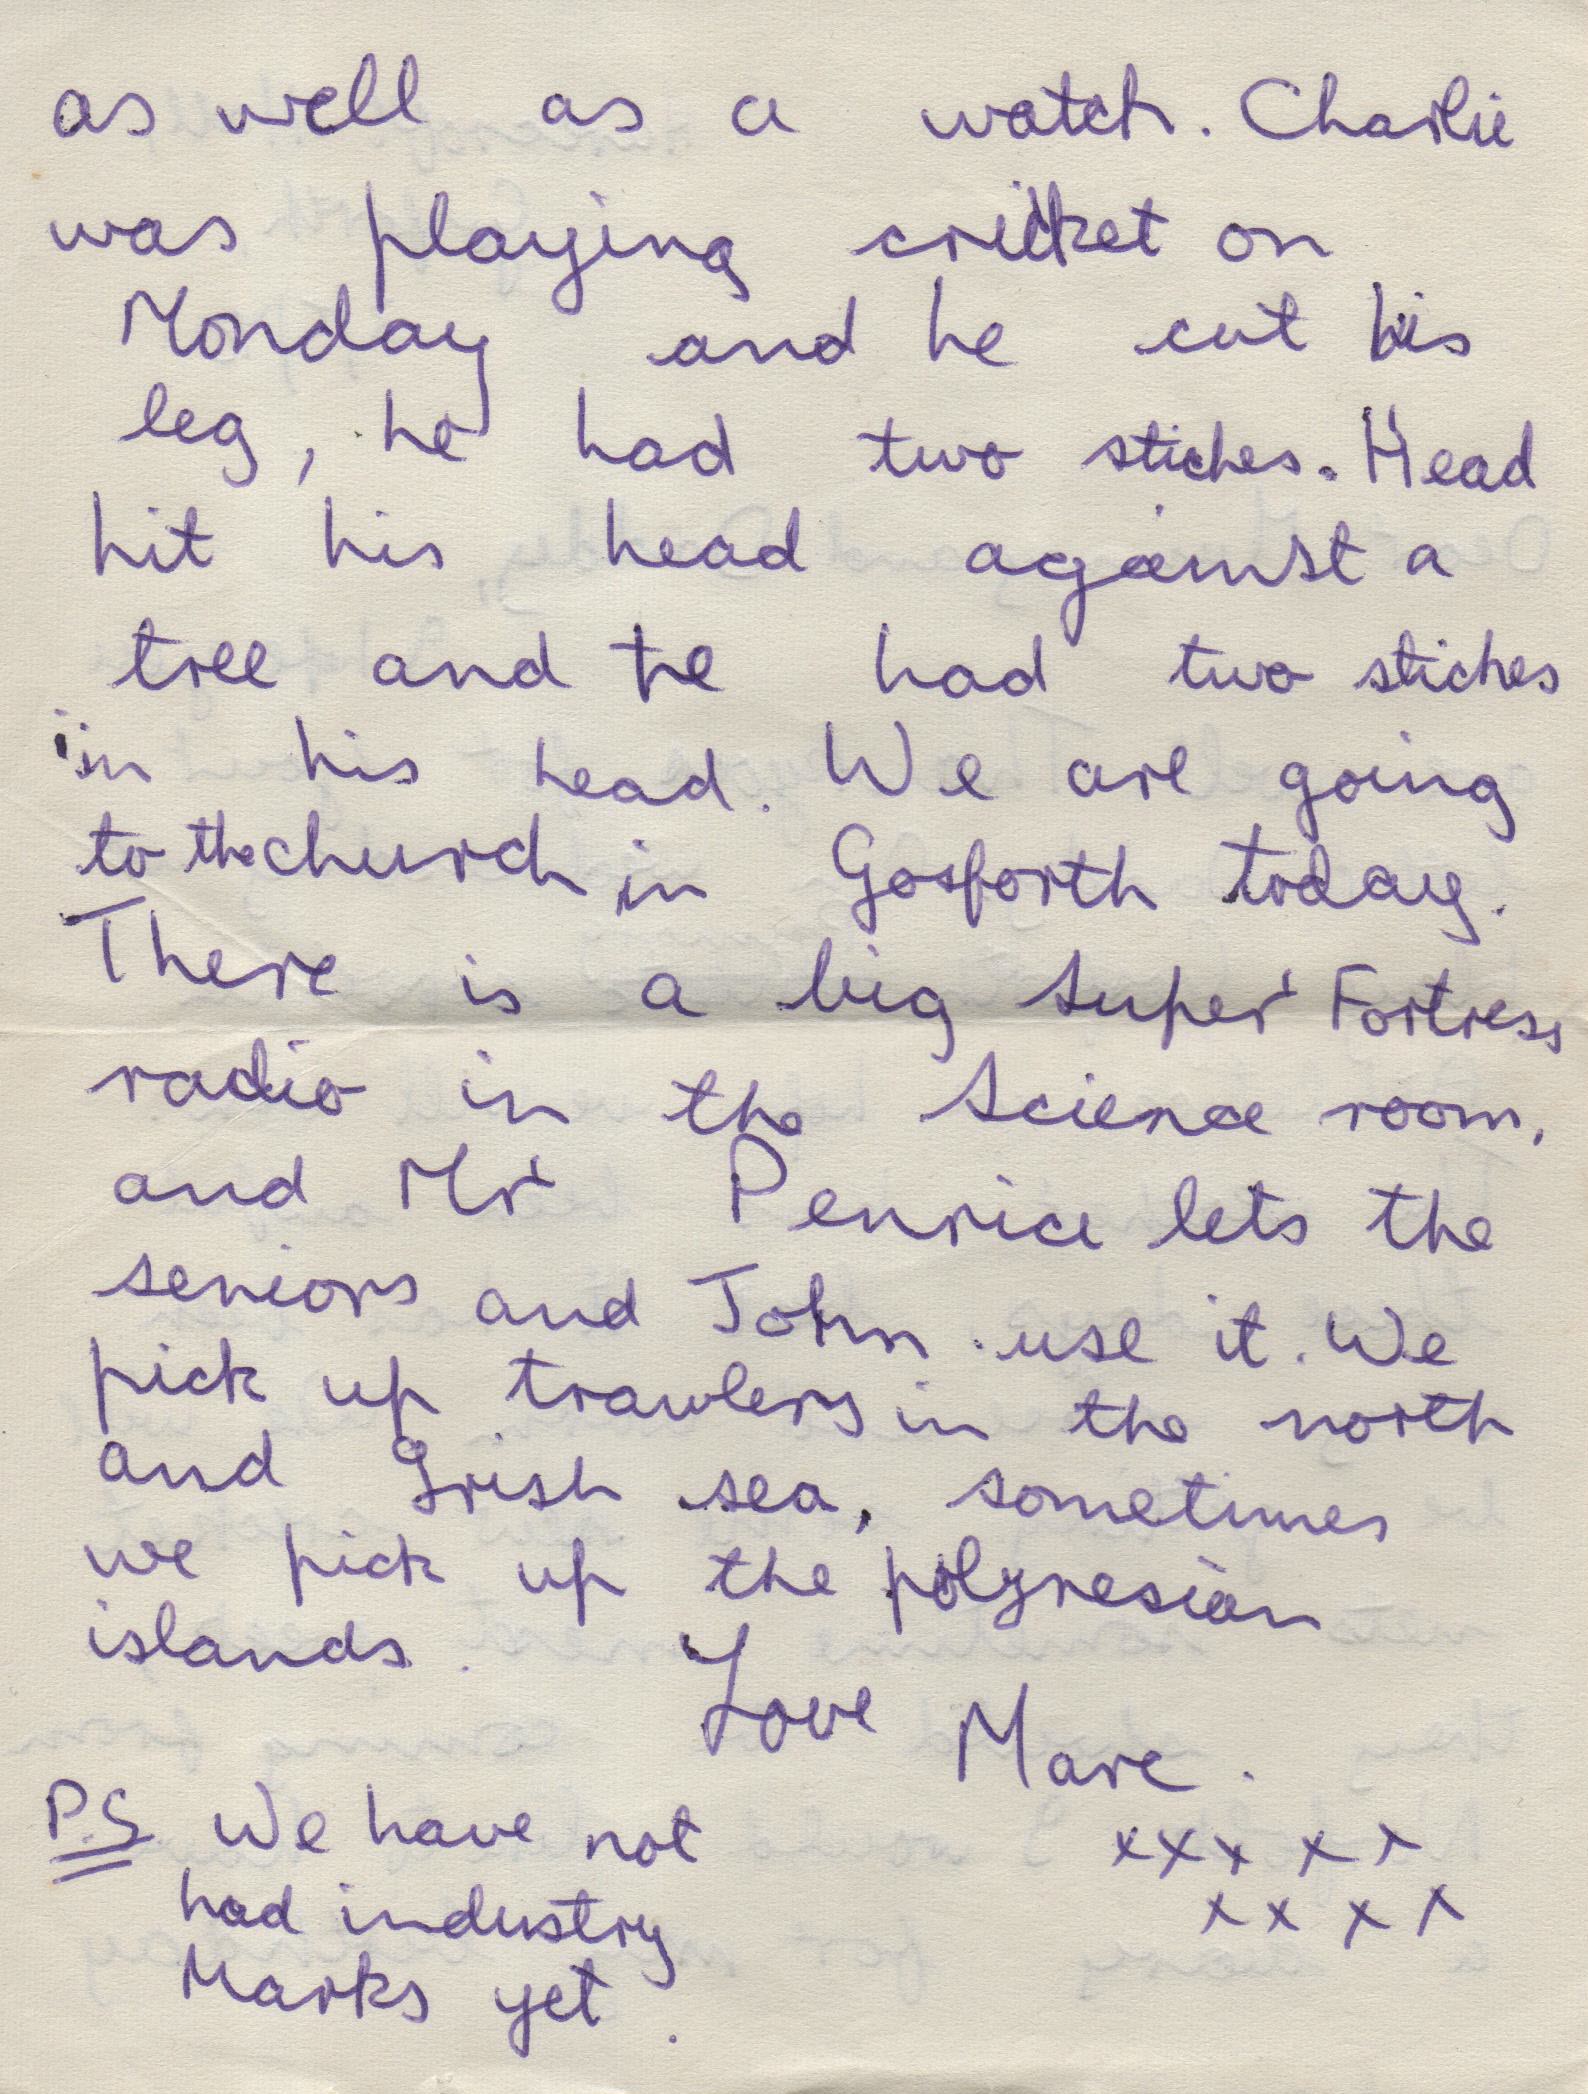 as well as a watch. Charlie
was playing cricket on
Monday and he cut his
leg, he had two stiches. Head
hit his head against a
tree and he had two stiches
in his head. We are going
to the church in Gosforth today.
There is a big super Fortress
radio in the Science room,
and Mr Penrice lets the
seniors and John use it. We
pick up trawlers in the north
and Irish sea, sometimes
we pick up the polynesian
islands.
Love Marc.
P.S We have not
had industry
Marks yet.
xxx xx
xx xx